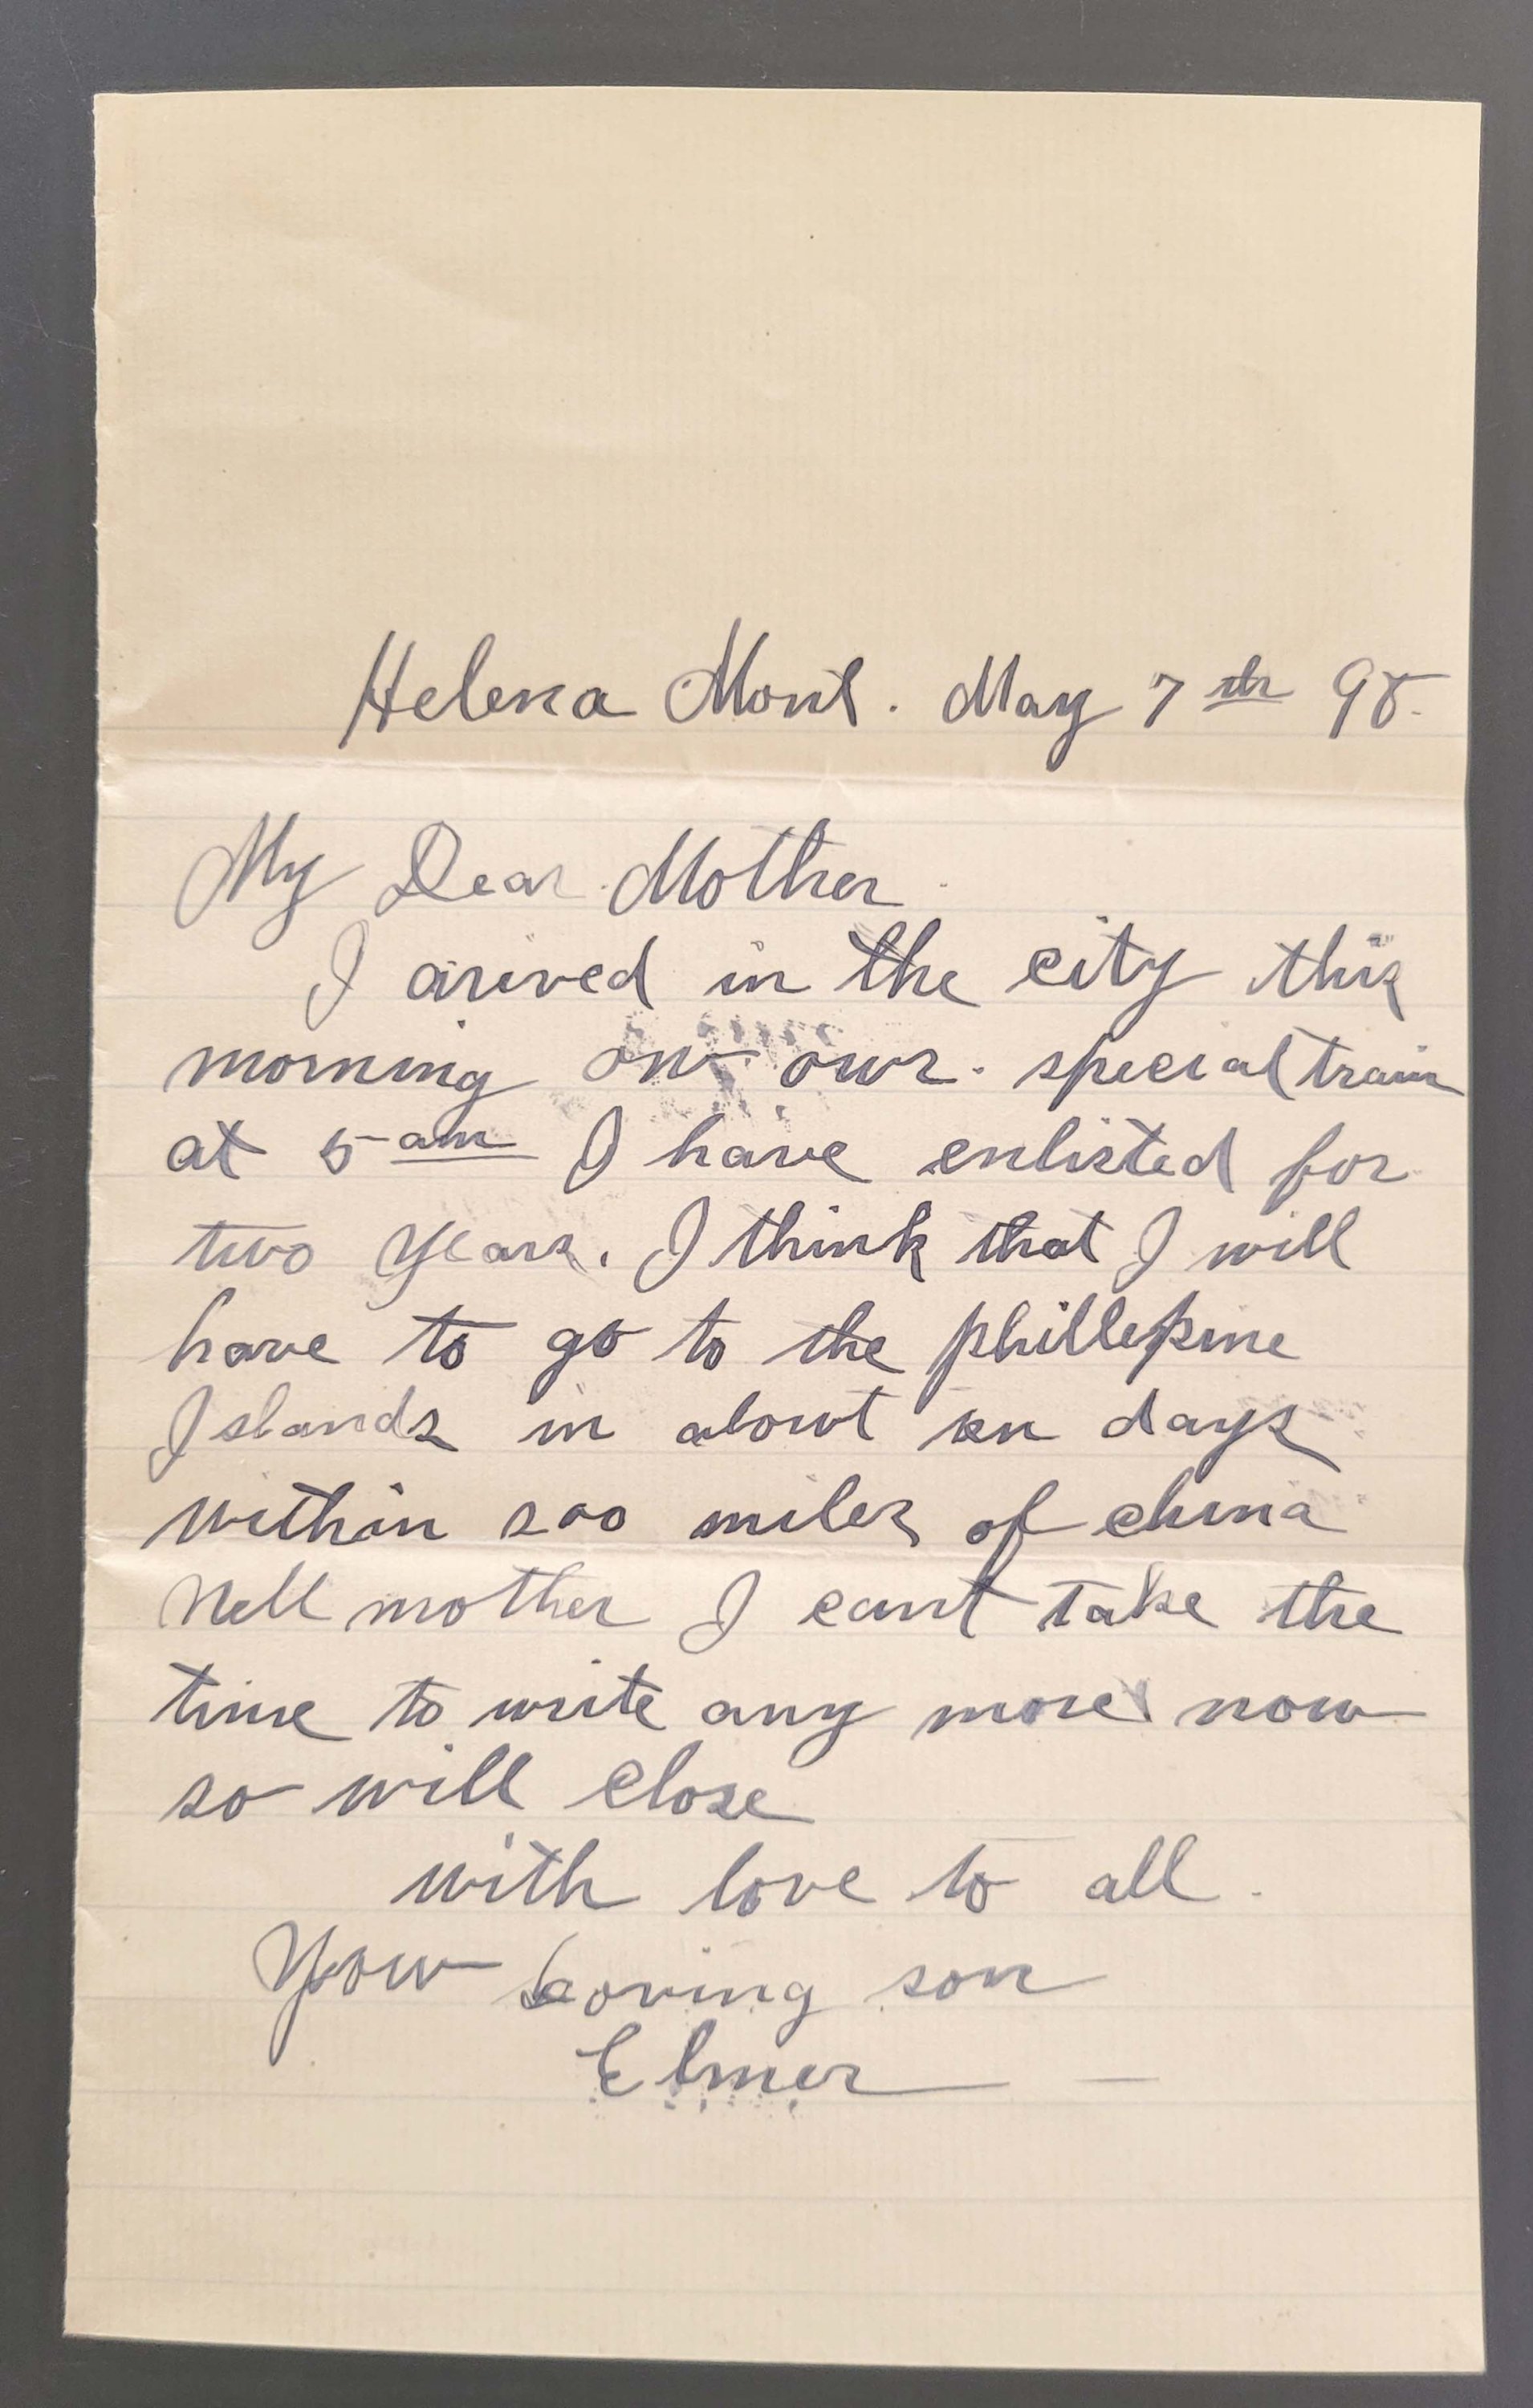 Helena Mont. May 7th 98.
My Dear Mother.
I arived in the city this
morning on our special train
at 5 am I have enlisted for
two years. I think that I will
have to go to the phillepine
Islands in about ten days
within 200 miles of china
Well mother I cant take the
time to write any more now
so will close
with love to all.
Your Loving son
Elmer